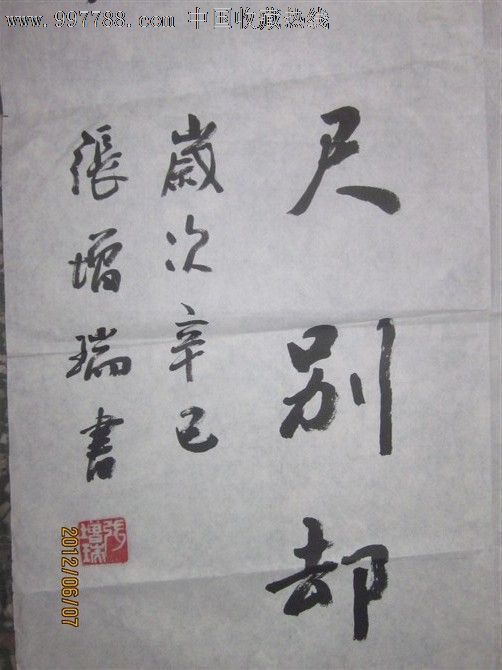 www.997788.com 中国收藏热线
尺别却
歲次辛巳
張增瑞書
张增瑞
2012/06/07